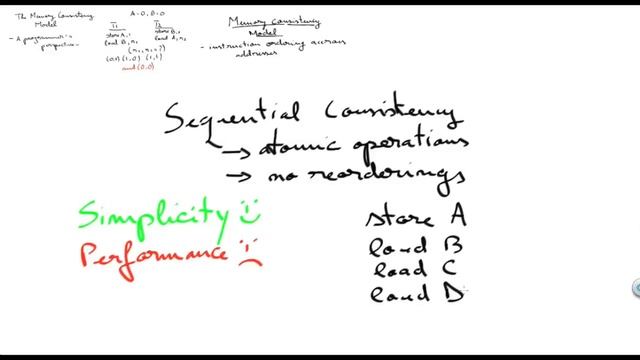 The Memory Consistency
Model
- A programmer's
perspective -
A=0, B=0
T1 T2
store A, 1 store B, 1
load B, r1 load A, r2
(r1, r2 = ?)
(0,1) (1,0) (1,1)
and (0,0)
Memory Consistency
Model
- instruction ordering across
addresses
Sequential Consistency
→ atomic operations
→ no reorderings
Simplicity
Performance
store A
load B
load C
load D